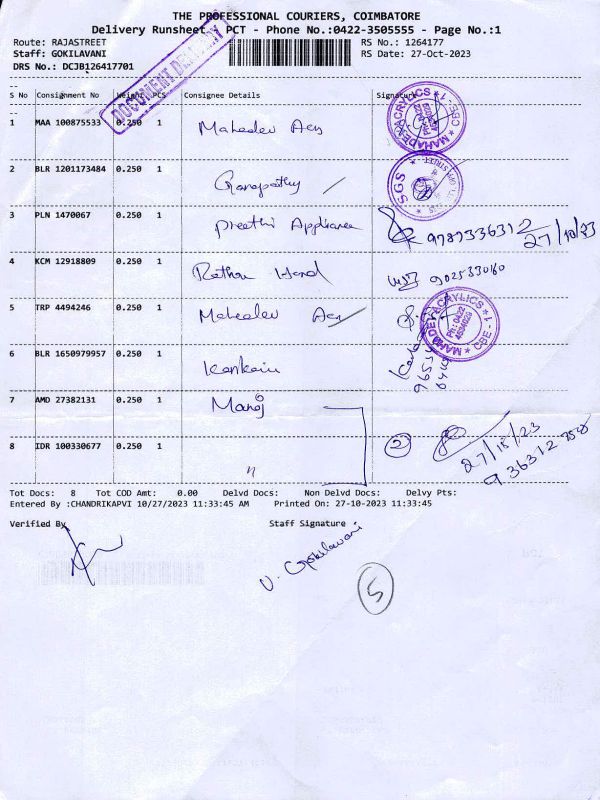 THE PROFESSIONAL COURIERS, COIMBATORE
Delivery Runsheet - PCT - Phone No.:0422-3505555 - Page No.:1
Route: RAJASTREET RS No.: 1264177
Staff: GOKILAVANI RS Date: 27-Oct-2023
DRS No.: DCJB126417701
DOCUMENT DELIVERY
S No Consignment No Weight PCS Consignee Details Signature
1 MAA 100875533 0.250 1 Mahadev Acy
MAHADEV ACRYLICS CBE-1
2 BLR 1201173484 0.250 1 Ganapathy
SGS
3 PLN 1470067 0.250 1 Preethi Appliance 27/10/23
4 KCM 12918809 0.250 1 Rathna Hand
5 TRP 4494246 0.250 1 Mahadev Acy
MAHADEV ACRYLICS CBE-1
Ph: 0422
6 BLR 1650979957 0.250 1
7 AMD 27382131 0.250 1 Manoj
8 IDR 100330677 0.250 1 "
2
Tot Docs: 8 Tot COD Amt: 0.00 Delvd Docs: Non Delvd Docs: Delvy Pts:
Entered By :CHANDRIKAPVI 10/27/2023 11:33:45 AM Printed On: 27-10-2023 11:33:45
Verified By Staff Signature
V. Gokilavani
5